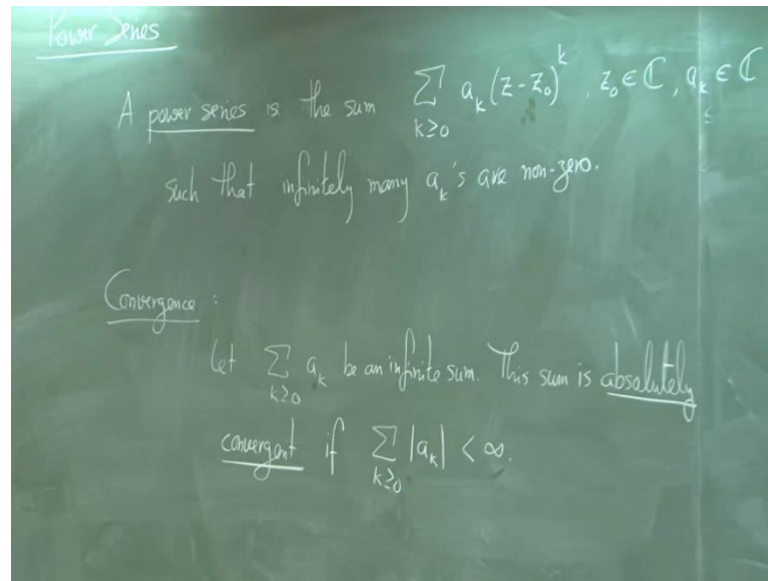 Power Series
A power series is the sum ∑_{k≥0} a_k (z-z_0)^k, z_0 ∈ ℂ, a_k ∈ ℂ
such that infinitely many a_k's are non-zero.
Convergence :
Let ∑_{k≥0} a_k be an infinite sum. This sum is absolutely
convergent if ∑_{k≥0} |a_k| < ∞.